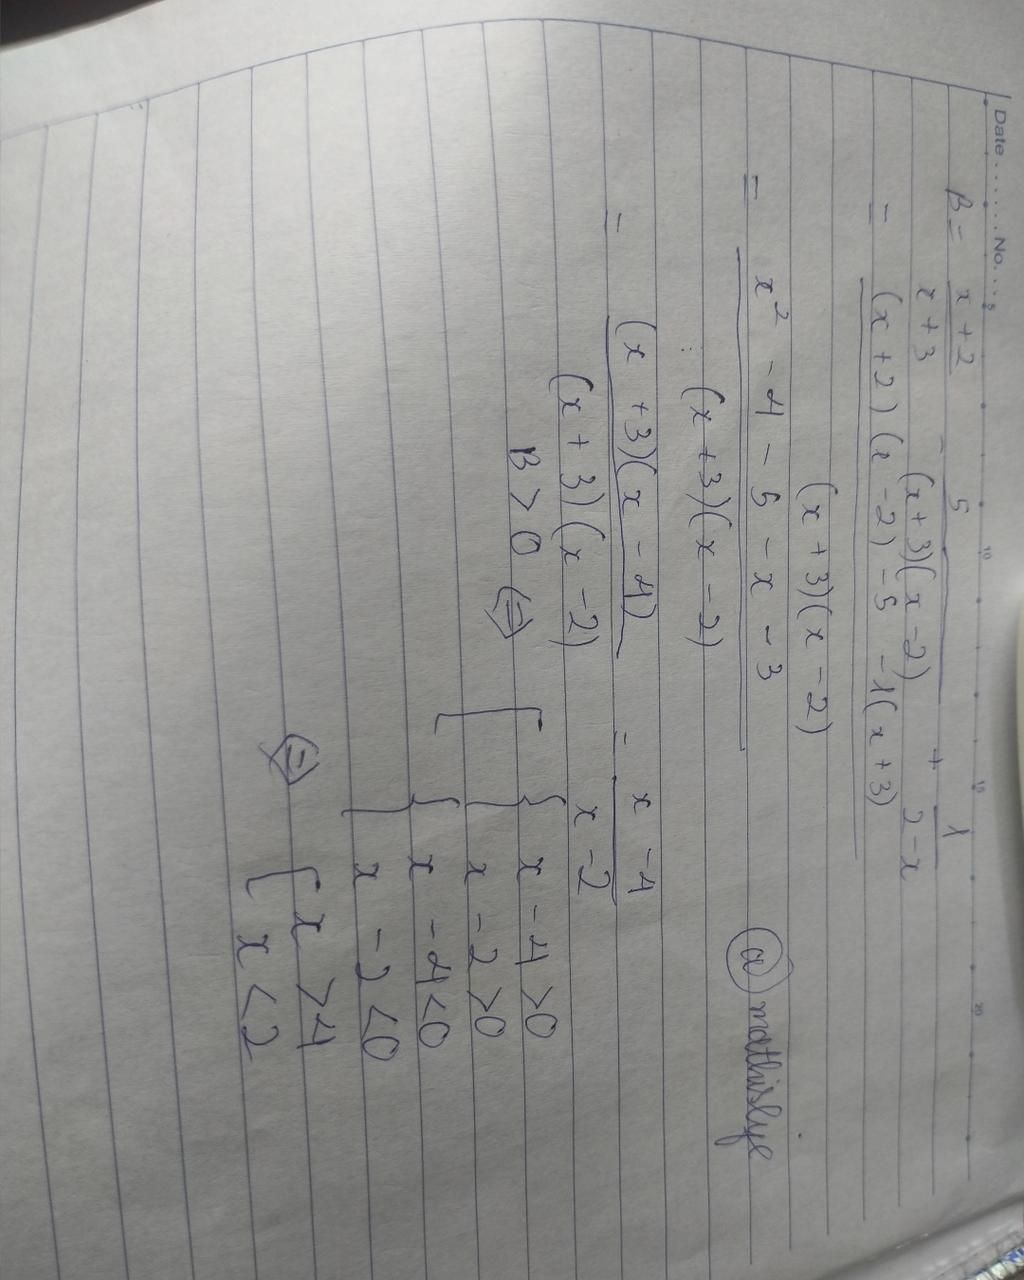 Date ....... No. ....
5 10 15 20
B = x + 2 / x + 3 - 5 / (x + 3)(x - 2) + 1 / 2 - x
= (x + 2)(x - 2) - 5 - 1(x + 3) / (x + 3)(x - 2)
= x² - 4 - 5 - x - 3 / (x + 3)(x - 2)
@ mathislife
= (x + 3)(x - 4) / (x + 3)(x - 2) = x - 4 / x - 2
B > 0 ⇔ [ { x - 4 > 0
x - 2 > 0
{ x - 4 < 0
x - 2 < 0
⇔ [ x > 4
x < 2